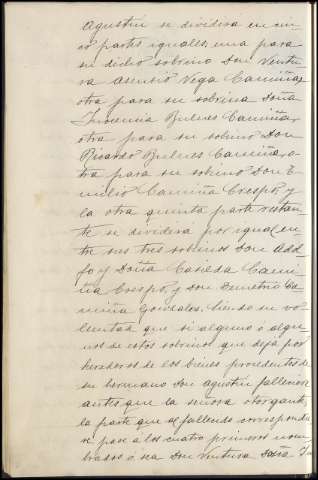 Agustín se dividira en cin-
co partes iguales, una para
su dicho sobrino Don Ventu-
ra Asensio Vega Camiña,
otra para su sobrina Doña
Inocencia Bulnes Camiña,
otra para su sobrino Don
Ricardo Bulnes Camiña, o-
tra para su sobrino Don E-
milio Camiña Crespo, y
la otra quinta parte restan-
te se dividirá por igual en-
tre sus tres sobrinos Don Adol-
fo y Doña Casilda Cami-
ña Crespo, y Don Demetrio Ca-
miña Gonzalez. Siendo su vo-
luntad que si alguno o algu-
nos de estos sobrinos que deja por
herederos de los bienes procedentes de
su hermano Don Agustín falleciere
antes que la misma otorgante,
la parte que al fallecido correspondie-
se pase á los cuatro primeros nom-
brados ó sea Don Ventura, Doña I-